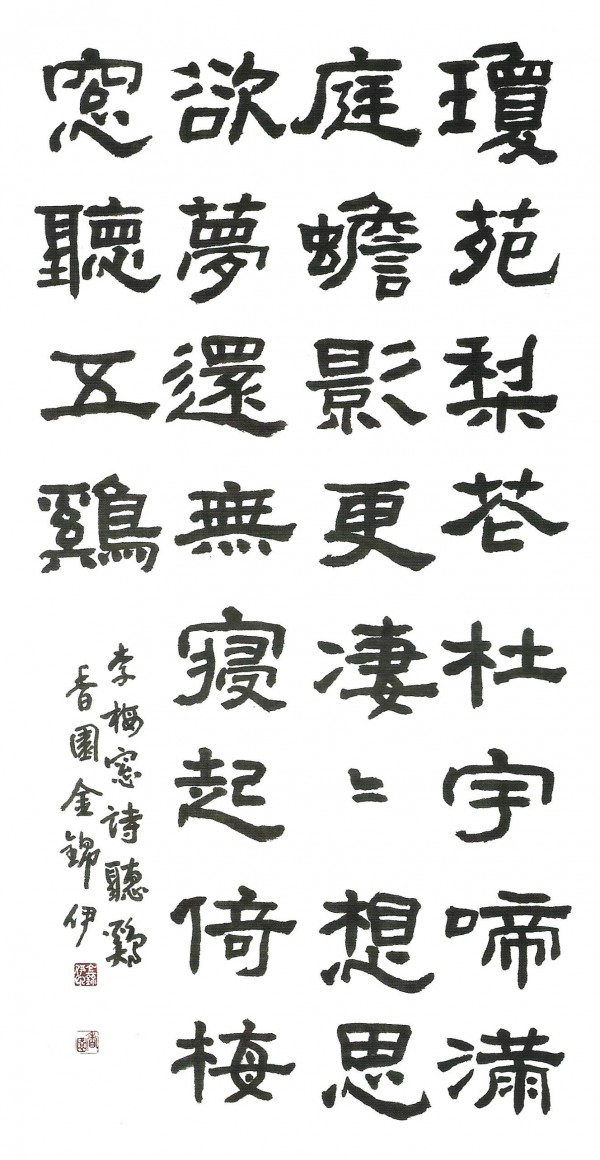 瓊苑梨花杜宇啼滿
庭蟾影更凄〻想思
欲夢還無寢起倚梅
窓聽五鷄
李梅窓詩聽鷄
香園金錦伊